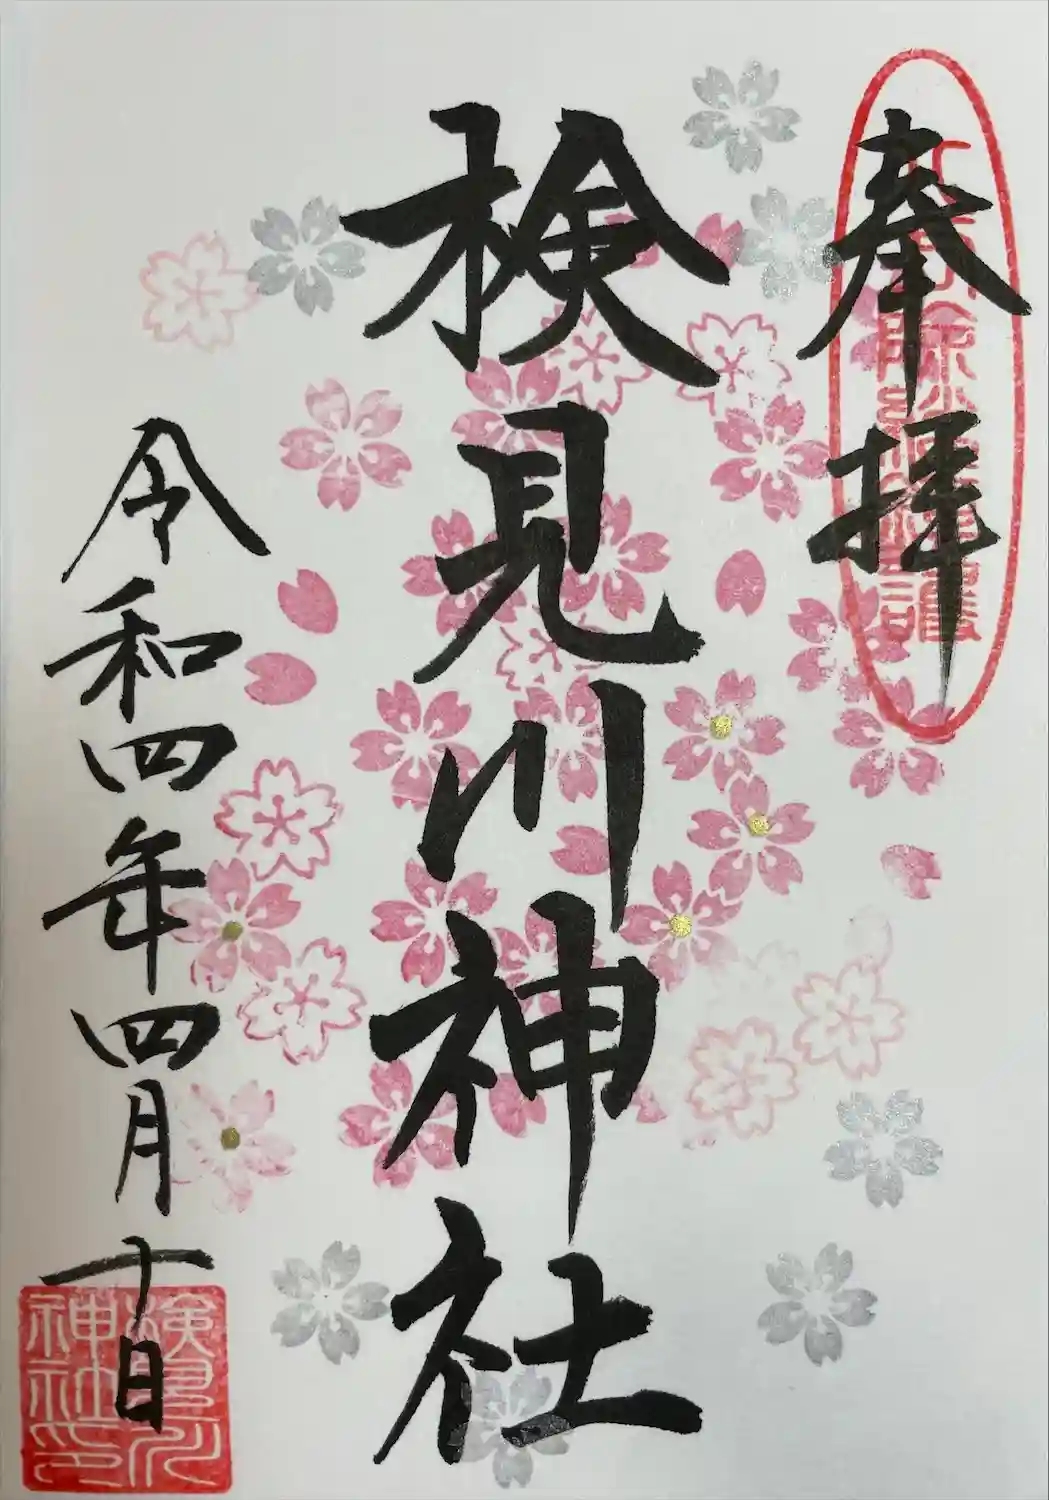 奉拝
検見川神社
令和四年四月十日
検見川神社印